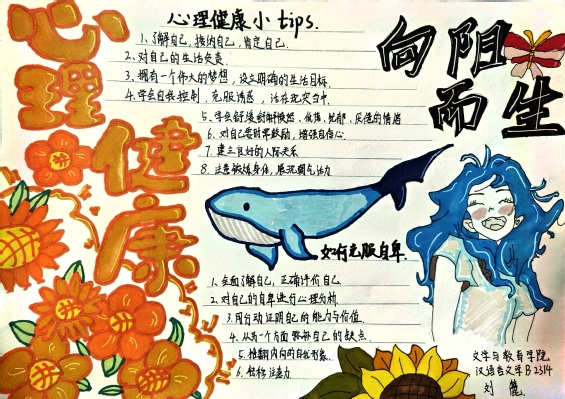 心理健康
心理健康小tips.
1、了解自己，接纳自己，肯定自己.
2、对自己的生活负责.
3、拥有一个伟大的梦想，设立明确的生活目标.
4、学会自我控制，克服诱惑，活在现实当中.
6、对自己要时常鼓励，增强自信心
7、建立良好的人际关系
8、注意锻炼身体，展现朝气活力
向阳而生
如何克服自卑.
1、全面了解自己，正确评价自己
2、对自己的自卑进行心理分析.
3、用行动证明自己的能力与价值.
4、从另一个方面弥补自己的缺点.
5、推翻内向的自我形象.
6、转移注意力
文学与教育学院
汉语言文学B2314